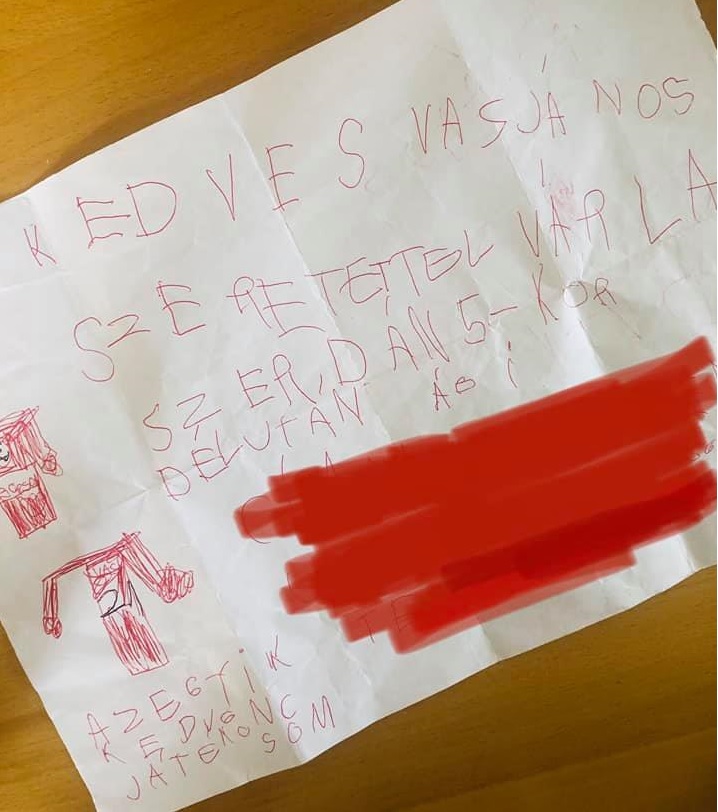 KEDVES VASJÁNOS
SZERETETTEL VÁRLA
SZERDÁN 5-KOR
DELUTÁN
AZEGYIK
KEDVENC
JATEKOSOM
21